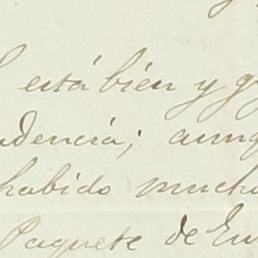 está bién y g
udencia; aunq
habido mucho
Paquete de Eu